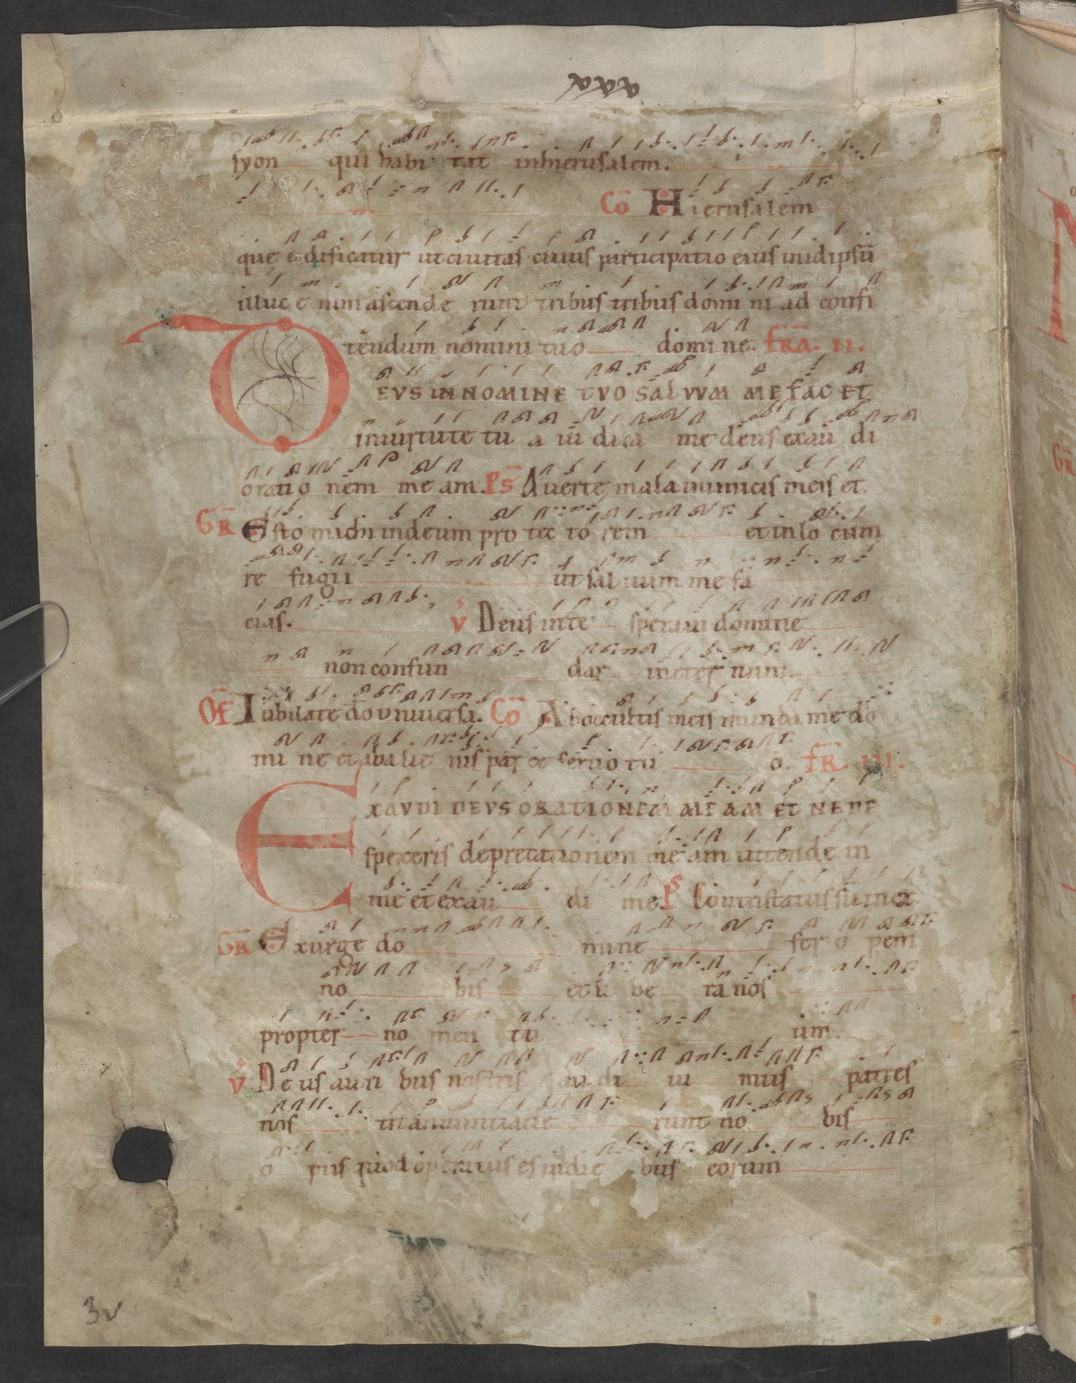 xxx
syon qui habi tat inhierusalem.
Cō Hierusalem
quę ędificatur ut ciuitas cuius participatio eius inidipsū
illuc enim ascende runt tribus tribus domi ni ad confi
tendum nomini tuo domine. FRA. II.
DEUS IN NOMINE TVO SALVVM ME FAC ET
inuirtute tu a iudica me deus exau di
oratio nem me am. Ps Auerte mala inimicis meis et
GR Esto michi indeum pro tec to rem et in lo cum
re fugii ut saluum me fa
cias. V Deus inte speraui domine
non confun dar ineter num.
Of Iubilate do uniuersa. Cō Aboccultis meis munda me do
mi ne et abalie nis parce seruo tu o. FR. III.
EXAVDI DEVS ORATIONEM MEAM ET NE DE
spexeris deprecationem me am intende in
me et exau di me. Ps Contristatus sum et
GR Exurge do mine fer o pem
no bis et li be ra nos
propter no men tu um.
V Deus auri bus nostris au di ui mus patres
nos tri annuntiaue runt no bis
o pus quod operatus es indie bus eorum
3v